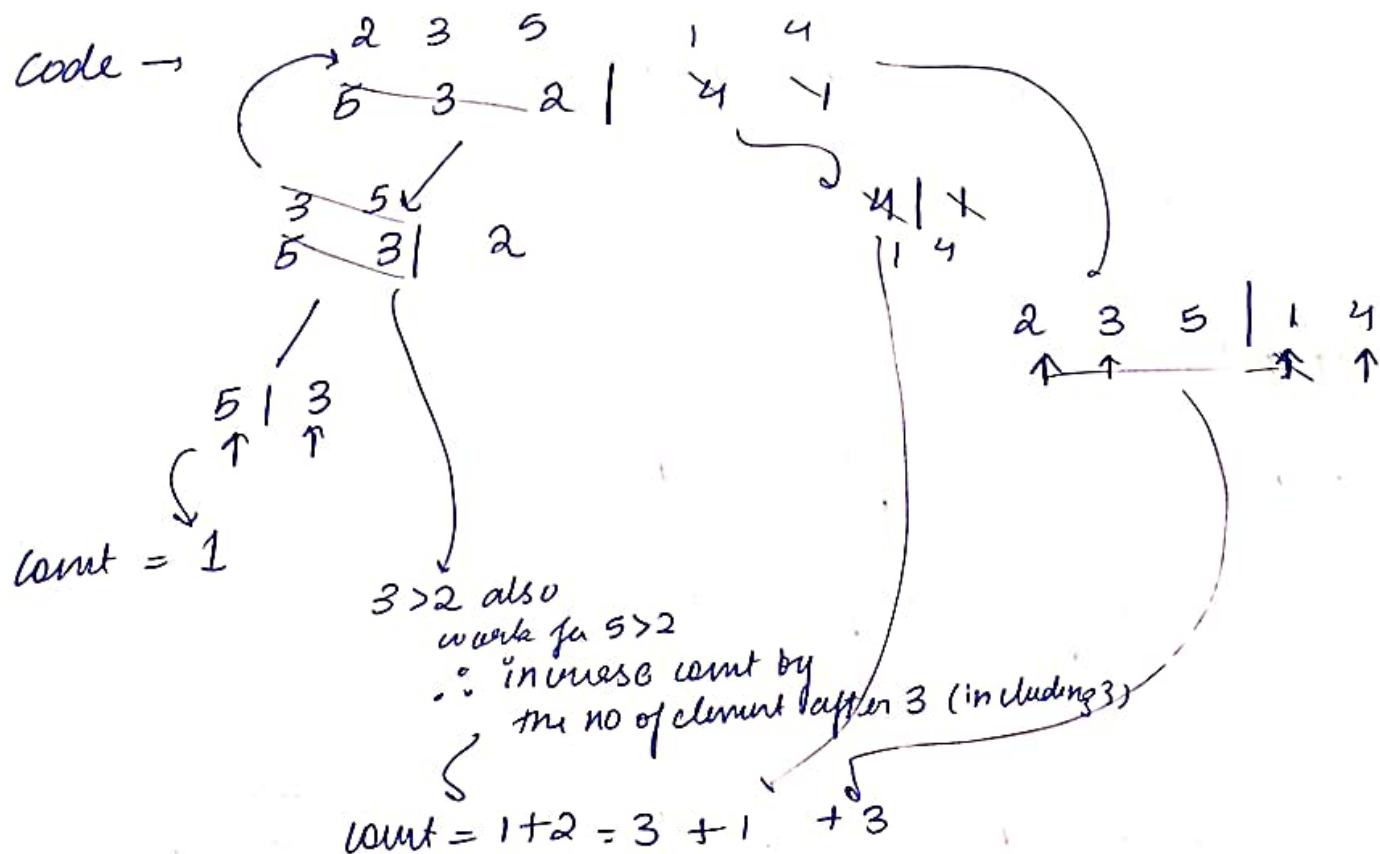 2 3 5 1 4
Code →
5 3 2 | 4 1
3 5
5 3 | 2
4 | 1
1 4
2 3 5 | 1 4
↑ ↑ ↑ ↑
5 | 3
↑ ↑
count = 1
3 > 2 also
work for 5 > 2
∴ increase count by
the no of element after 3 (including 3)
count = 1 + 2 = 3 + 1 + 3